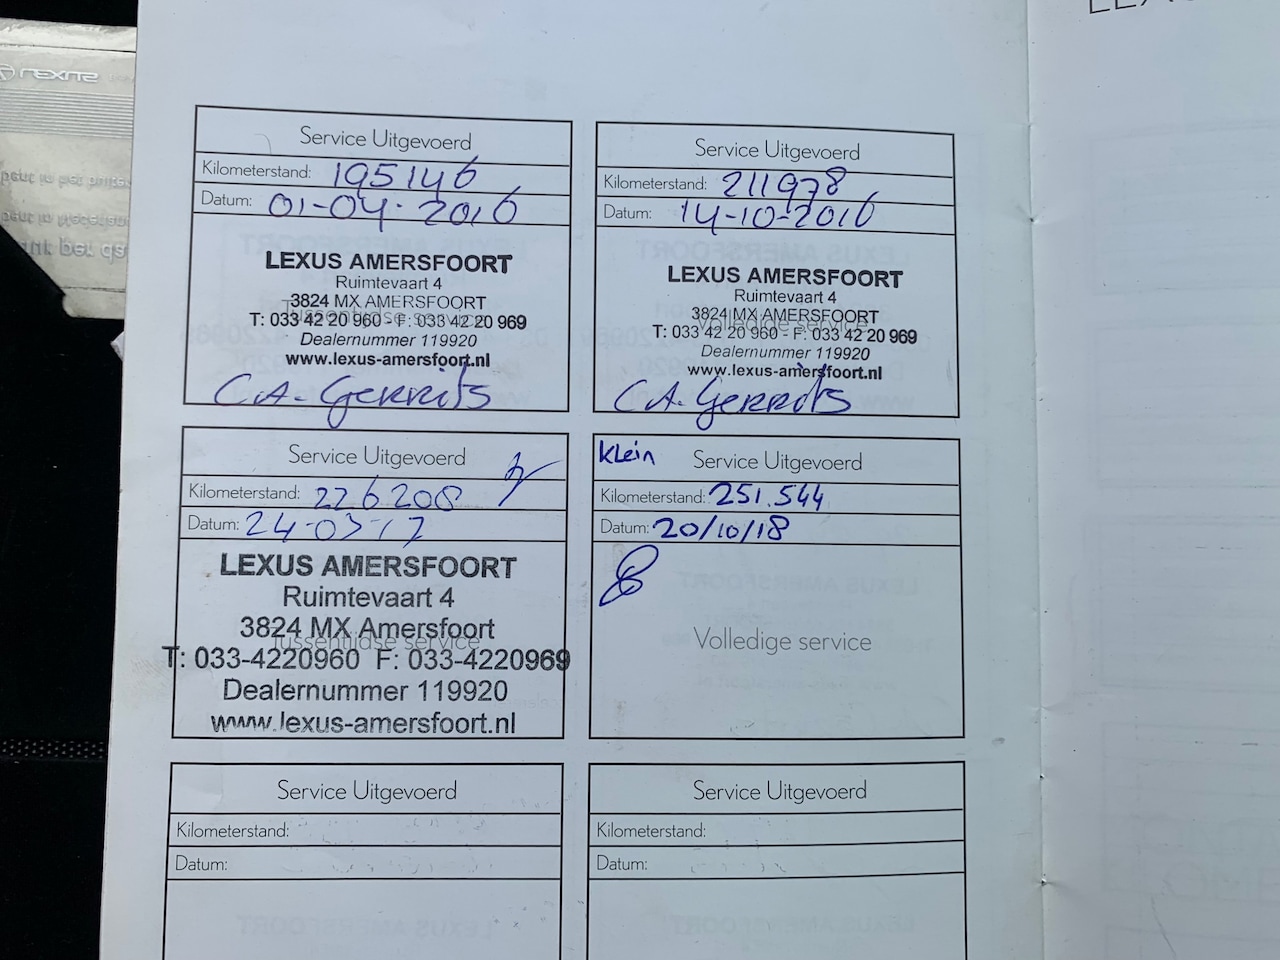 LEXUS
Service Uitgevoerd
Kilometerstand: 195146
Datum: 01-04-2016
LEXUS AMERSFOORT
Ruimtevaart 4
3824 MX AMERSFOORT
Tussentijdse service
T: 033 42 20 960 - F: 033 42 20 969
Dealernummer 119920
www.lexus-amersfoort.nl
CA. Gerrits
Service Uitgevoerd
Kilometerstand: 211978
Datum: 14-10-2016
LEXUS AMERSFOORT
Ruimtevaart 4
3824 MX AMERSFOORT
Volledige service
T: 033 42 20 960 - F: 033 42 20 969
Dealernummer 119920
www.lexus-amersfoort.nl
CA. Gerrits
Service Uitgevoerd
Kilometerstand: 226208
Datum: 24-03-17
LEXUS AMERSFOORT
Ruimtevaart 4
3824 MX Amersfoort
Tussentijdse service
T: 033-4220960 F: 033-4220969
Dealernummer 119920
www.lexus-amersfoort.nl
Klein
Service Uitgevoerd
Kilometerstand: 251.544
Datum: 20/10/18
Volledige service
Service Uitgevoerd
Kilometerstand:
Datum:
Service Uitgevoerd
Kilometerstand:
Datum: